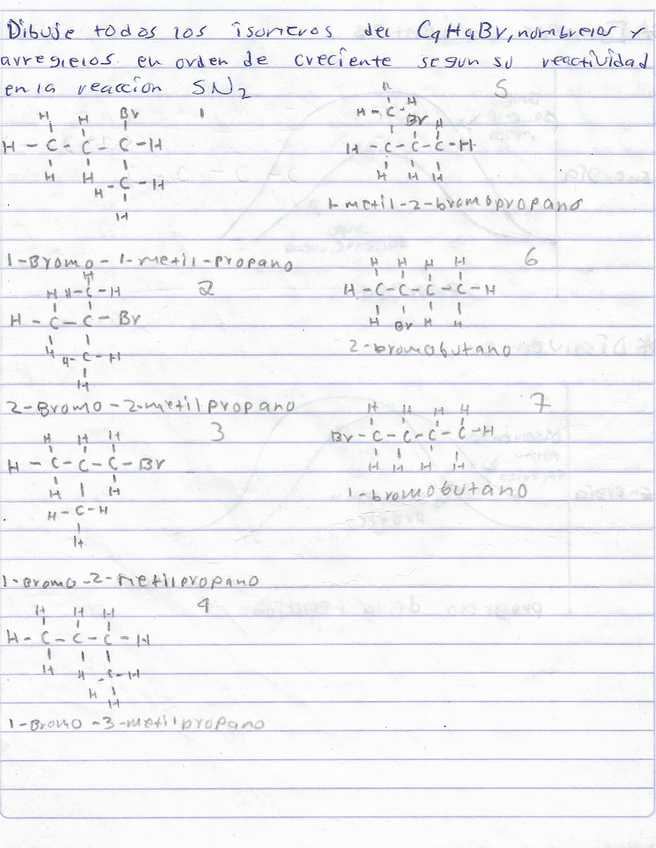 Dibuje todos los isomeros del C4H9Br, nombrelos y
arregrelos en orden de creciente segun su reactividad
en la reaccion SN2
1
H H Br
H - C - C - C - H
H H H - C - H
H
1-Bromo-1-metil-propano
2
H
H H - C - H
H - C - C - Br
H H - C - H
H
2-Bromo-2-metilpropano
3
H H H
H - C - C - C - Br
H H
H - C - H
H
1-Bromo-2-metilpropano
4
H H H
H - C - C - C - H
H H C - H
H H
1-Bromo-3-metilpropano
5
H
H - C - H
Br H
H - C - C - C - H
H H H
1-metil-2-bromopropano
6
H H H H
H - C - C - C - C - H
H Br H H
2-bromobutano
7
H H H H
Br - C - C - C - C - H
H H H H
1-bromobutano